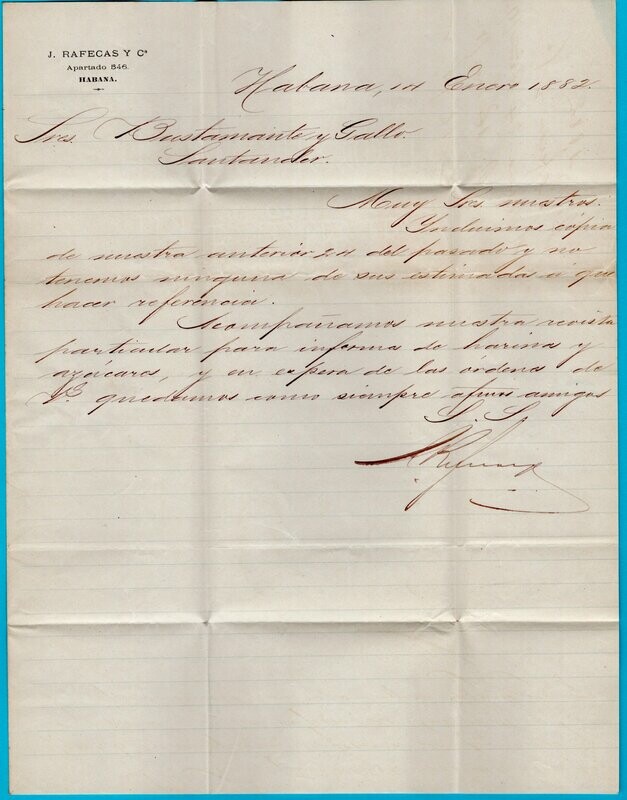 J. RAFECAS Y Cª
Apartado 546.
HABANA.
Habana, 14 Enero 1882.
Sres. Bustamante y Gallo.
Santander.
Muy Sres. nuestros.
Incluimos cópia
de nuestra anterior 24 del pasado y no
tenemos ninguna de sus estimadas á que
hacer referencia.
Acompañamos nuestra revista
particular para informe de harina y
azúcares, y en espera de las órdenes de
Vs. quedamos como siempre afmos amigos
S. S.